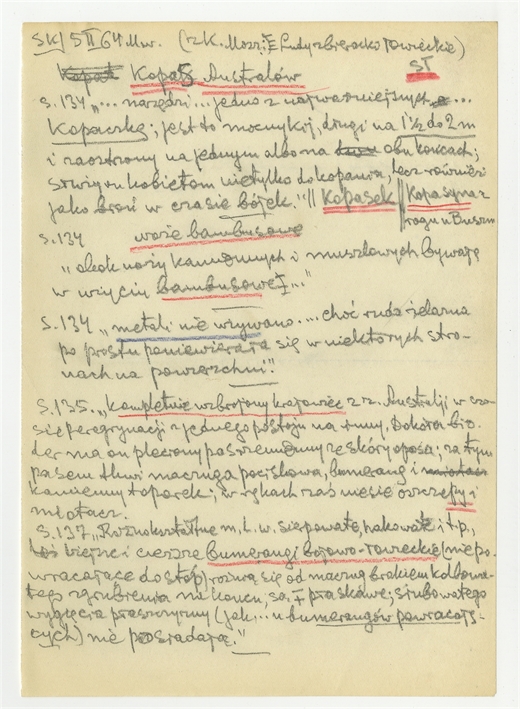 SK/ 5 II 64 Mw. (z K. Mosz. Ludy zbieracko-łowieckie)
Kopacz Australów ST
s. 134 „... narzędzi... jedno z najważniejszych ...
Kopaczka; jest to mocny kij, długi na 1 1/2 do 2 m
i zaostrzony na jednym albo na obu końcach;
służy on kobietom nie tylko do kopania, lecz również
jako broń w czasie bójek." || Kopasek || Kopasyna z
rogu u Buszm
s. 134 noże bambusowe
„ obok noży kamiennych i muszlowych bywają
w użyciu bambusowe..."
s. 134 „metali nie używano... choć ruda żelazna
po prostu poniewierała się w niektórych stro-
nach na powierzchni."
s. 135. „Kompletnie uzbrojony krajowiec z z. Australij w cza-
sie peregrynacji z jednego postoju na inny. Dokoła bio-
der ma on pleciony pas rzemienny ze skóry oposa; za tym
pasem tkwi maczuga pociskowa, bumerang i
kamienny toporek; w rękach zaś niesie oszczepy i
miotacz.
s. 137 „Różnokształtne m. i. w. sierpowate, hakowate i t.p.,
lżejsze i cięższe bumerangi bojowo-łowieckie (niepo-
wracające do stóp) różnią się od maczug brakiem kolbowa-
tego zgrubienia na końcu, są płaskawe; śrubowatego
wygięcia płaszczyzny (jak... u bumerangów powracają-
cych) nie posiadają."